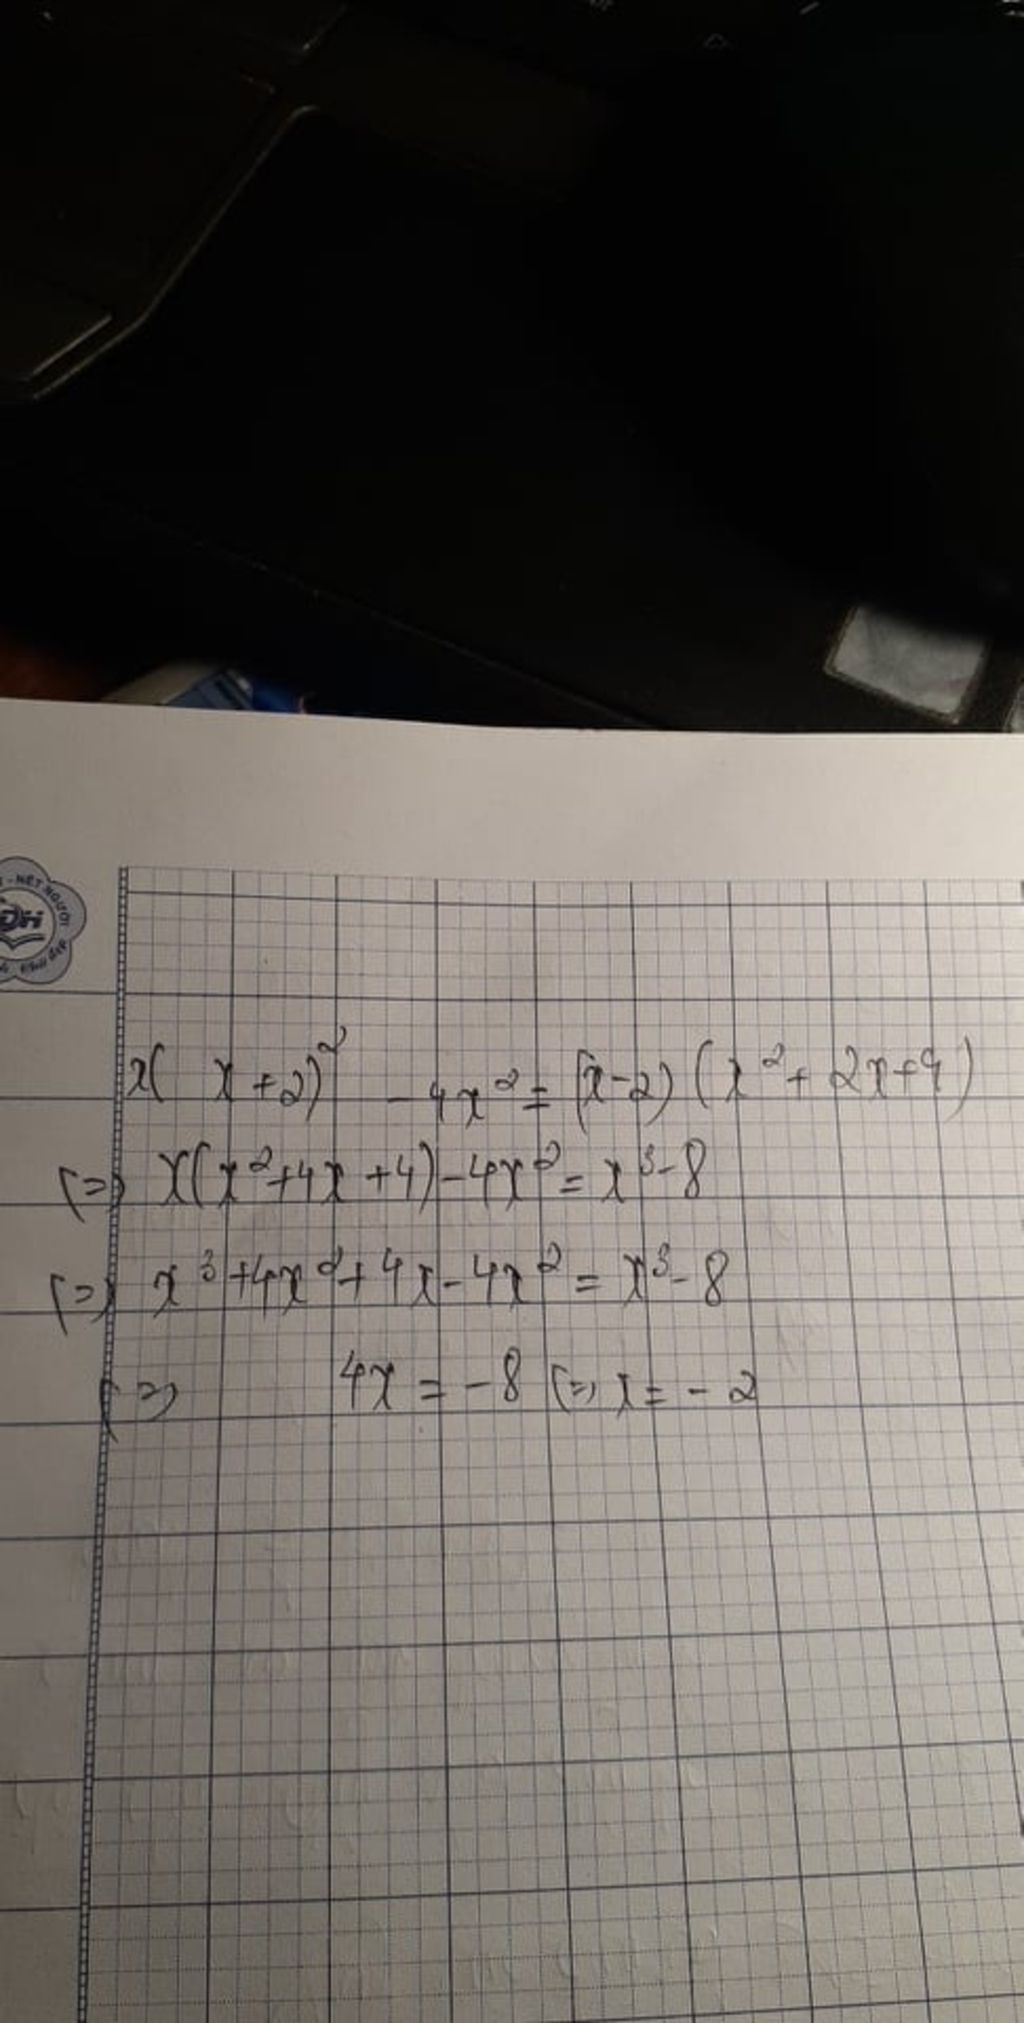 - NÉT NGƯỜI
ĐH
x( x+2)² - 4x² = (x-2) (x² + 2x+4)
(=) x(x²+4x+4)-4x² = x³-8
(=) x³+4x²+4x-4x² = x³-8
(=) 4x = -8 (=) x = -2